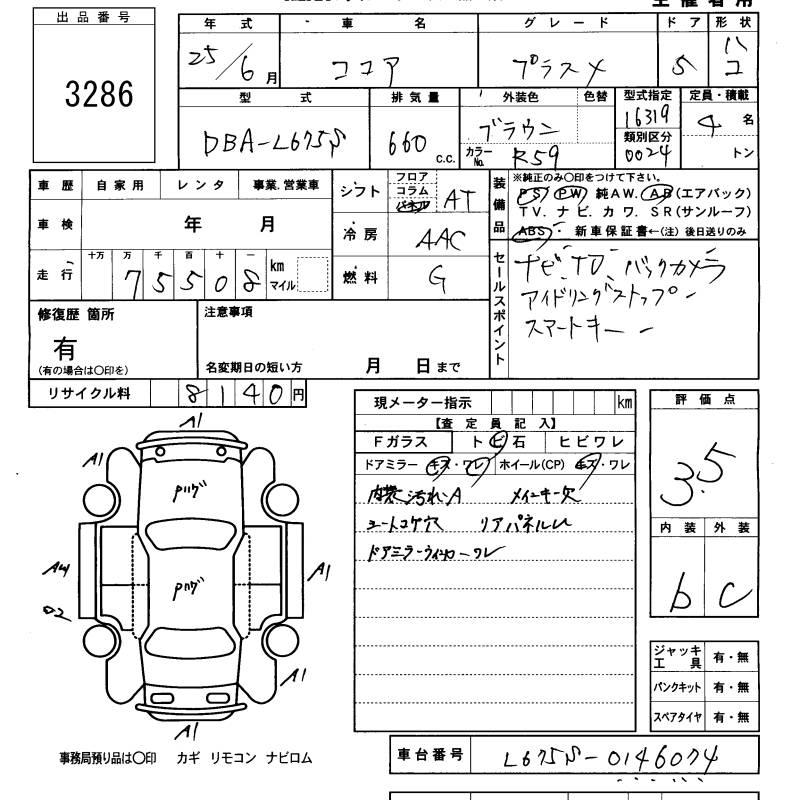 出品番号
3286
年式 車名 グレード ドア 形状
25/6月 ココア プラスX 5 ハコ
型式 排気量 外装色 色替 型式指定 定員・積載
DBA-L675S 660 c.c. ブラウン 16319 4名
カラーNo. R59 類別区分 0024 トン
車歴 自家用 レンタ 事業.営業車
シフト フロア コラム パネル AT
車検 年 月
冷房 AAC
走行 十万 万 千 百 十 一 km マイル
75508
燃料 G
装備品
※純正のみ○印をつけて下さい。
PS PW 純AW. AB(エアバック)
TV. ナビ. カワ. SR(サンルーフ)
ABS・ 新車保証書←(注) 後日送りのみ
セールスポイント
ナビ、TV、バックカメラ
アイドリングストップー
スマートキーー
修復歴 箇所
有
(有の場合は○印を)
注意事項
名変期日の短い方 月 日まで
リサイクル料 8140円
現メーター指示 km
【査定員記入】
Fガラス トビ石 ヒビワレ
ドアミラー キズ・ワレ ホイール(CP) キズ・ワレ
内装汚れA メインキー欠
シートコゲ穴 リアパネルU
ドアミラーウインカーワレ
評価点
3.5
内装 外装
b C
ジャッキ工具 有・無
パンクキット 有・無
スペアタイヤ 有・無
A1
A1
Pハゲ
Pハゲ
A1
A1
A1
事務局預り品は○印 カギ リモコン ナビロム
車台番号 L675S-0146074